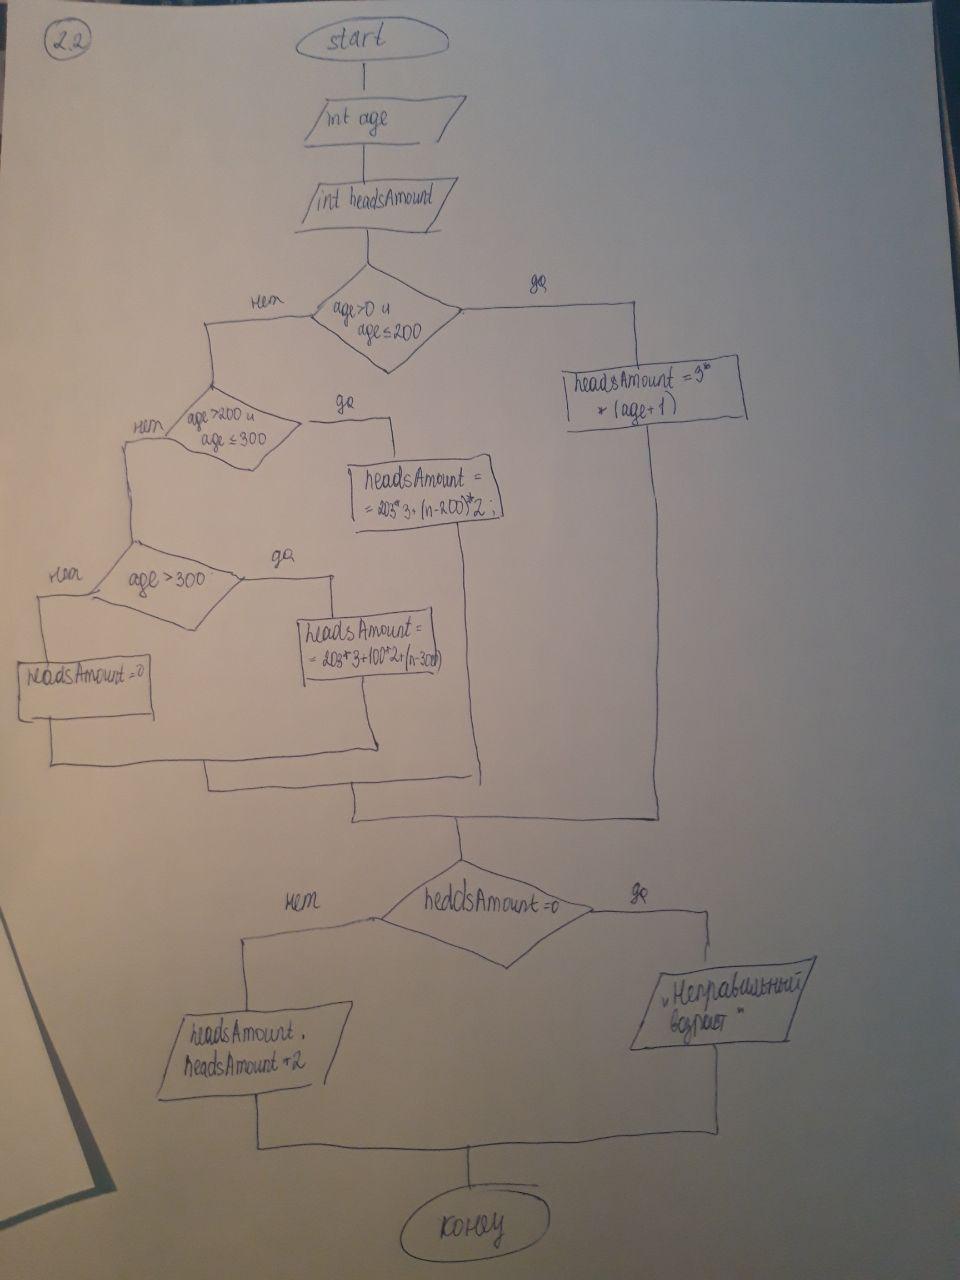 2.2
start
int age
int headsAmount
нет
да
age>0 и
age≤200
headsAmount = 3*
* (age+1)
нет
да
age>200 и
age≤300
headsAmount =
= 203*3+(n-200)*2;
нет
да
age>300
headsAmount =
= 203*3+100*2+(n-300)
headsAmount=0
нет
да
headsAmount=0
headsAmount,
headsAmount*2
"Неправильный
возраст"
конец